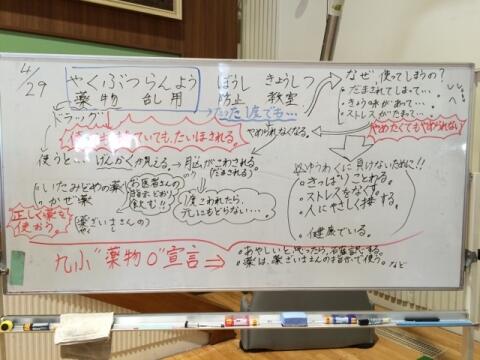 4/29
やくぶつらんよう ぼうし きょうしつ
薬物乱用 防止 教室
ドラッグ
たった1度でも…
なぜ、使ってしまうの?
・だまされてしまって…
・きょう味があって…
・ストレスがたまって…
ていても、たいほされる。
やめられなくなる。
やめたくてもやめられない
使うと… げんかくが見える。→脳がこわされる。
(だまされる)
・いたみどめの薬
・かぜ薬
お医者さんの
飲む!!
1度こわれたら、
元にもどらない…
正しく薬を
使おう。
薬ざいしさんの
※ゆうわくに負けないために!!
・きっぱりことわる。
・ストレスをなくす。
・人にやさしく接する。
・健康でいる。
九小"薬物0"宣言⇒
・あやしいと思ったら、
・薬は、薬ざいしさんの指示で使う。など